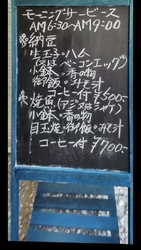 モーニングサービス
AM6:30~AM9:00
納豆
生玉子・ハム
又はベーコンエッグ
小鉢・香の物
御飯・みそ汁
コーヒー付 ¥500-
焼魚(アジ又はシャケ)
小鉢・香の物
目玉焼・御飯・みそ汁
コーヒー付 ¥700-